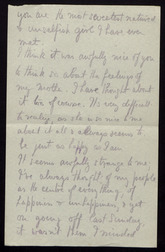 you are the most sweetest natured
& unselfish girl I have ever
met.
I think it was awfully nice of you
to think so about the feelings of
my mother. I have thought about
it too of course. It's very difficult
to realize, as she is so nice to me
about it all & always seems to
be just as happy as I am
It seems awfully strange to me,
I've always thought of my people
as the centre of everything, of
happiness & unhappiness, & yet
on going off last Sunday
it wasn't them I minded